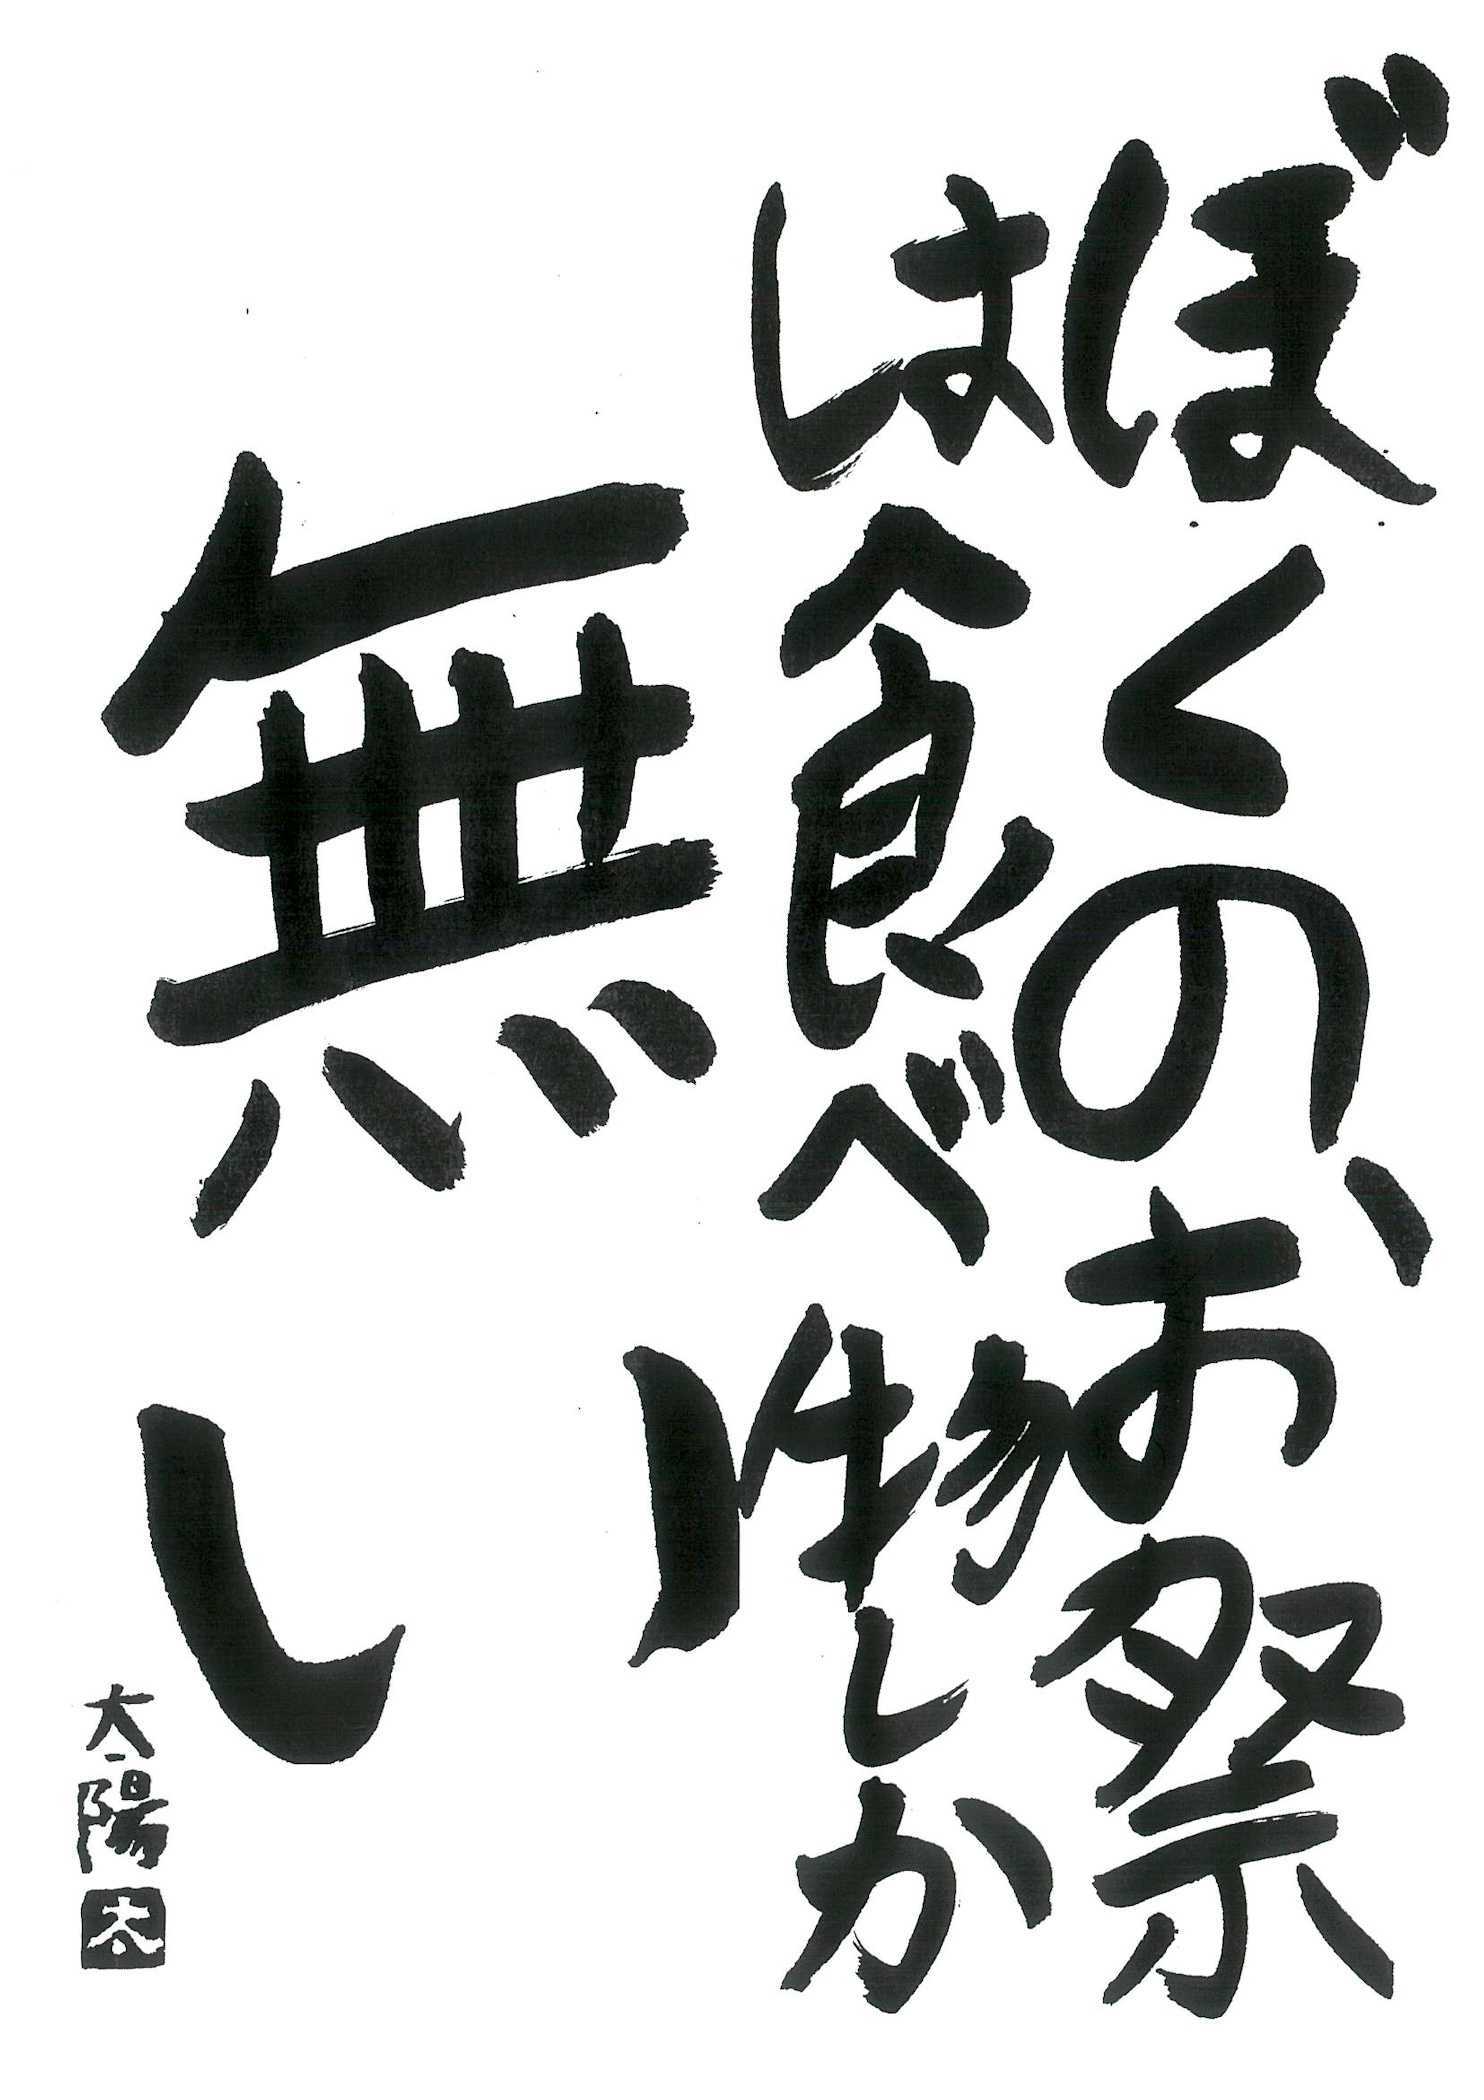 ぼくの、お祭
は食べ物しか
無い
太陽
太